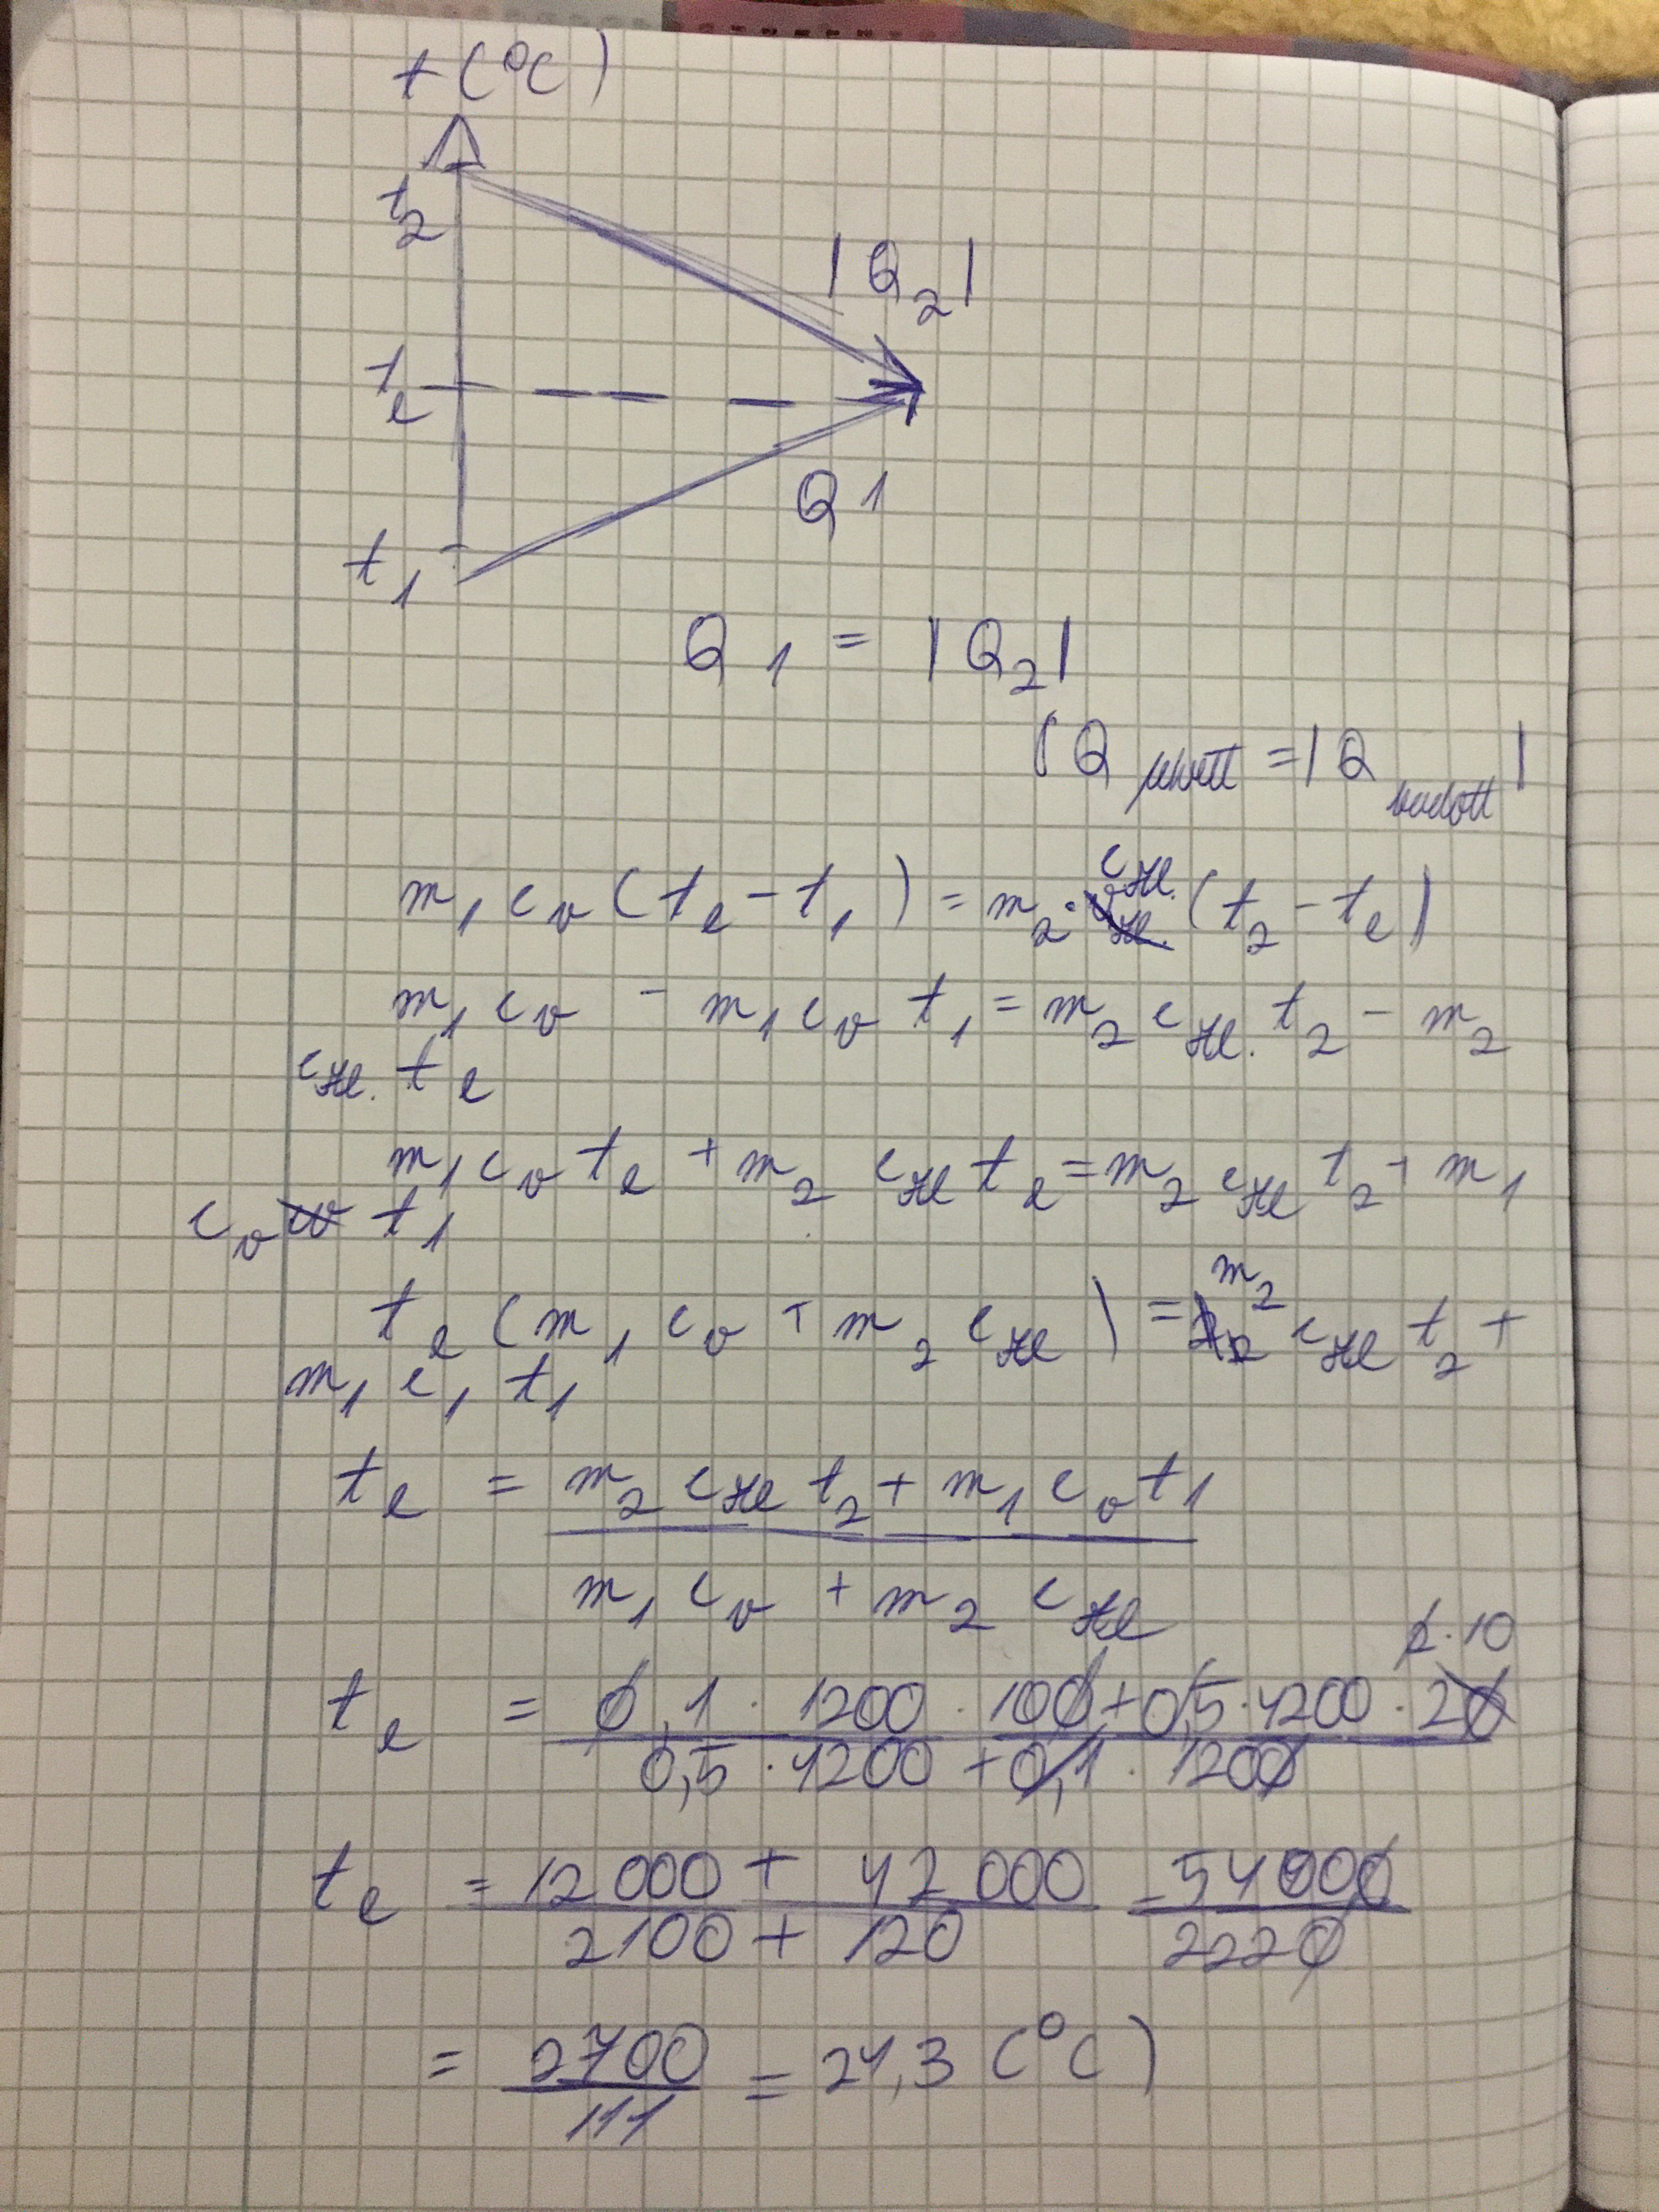 t (°C)
t₂
|Q₂|
tₑ
Q1
t₁
Q₁ = |Q₂|
(Q felvett = |Q leadott|
m₁ c_v (tₑ - t₁) = m₂ · c_Hl. (t₂ - tₑ)
m₁ c_v - m₁ c_v t₁ = m₂ c_Hl. t₂ - m₂
c_Hl. tₑ
m₁ c_v tₑ + m₂ c_Hl tₑ = m₂ c_Hl t₂ + m₁
c_v t₁
tₑ (m₁ c_v + m₂ c_Hl) = m₂ c_Hl t₂ +
m₁ c₁ t₁
tₑ = (m₂ c_Hl t₂ + m₁ c_v t1) /
m₁ c_v + m₂ c_Hl
2 · 10
tₑ = 0,1 · 1200 · 100 + 0,5 · 4200 · 20
0,5 · 4200 + 0,1 · 1200
tₑ = 12 000 + 42 000 = 54000
2100 + 120 2220
= 2700 = 24,3 (°C)
111